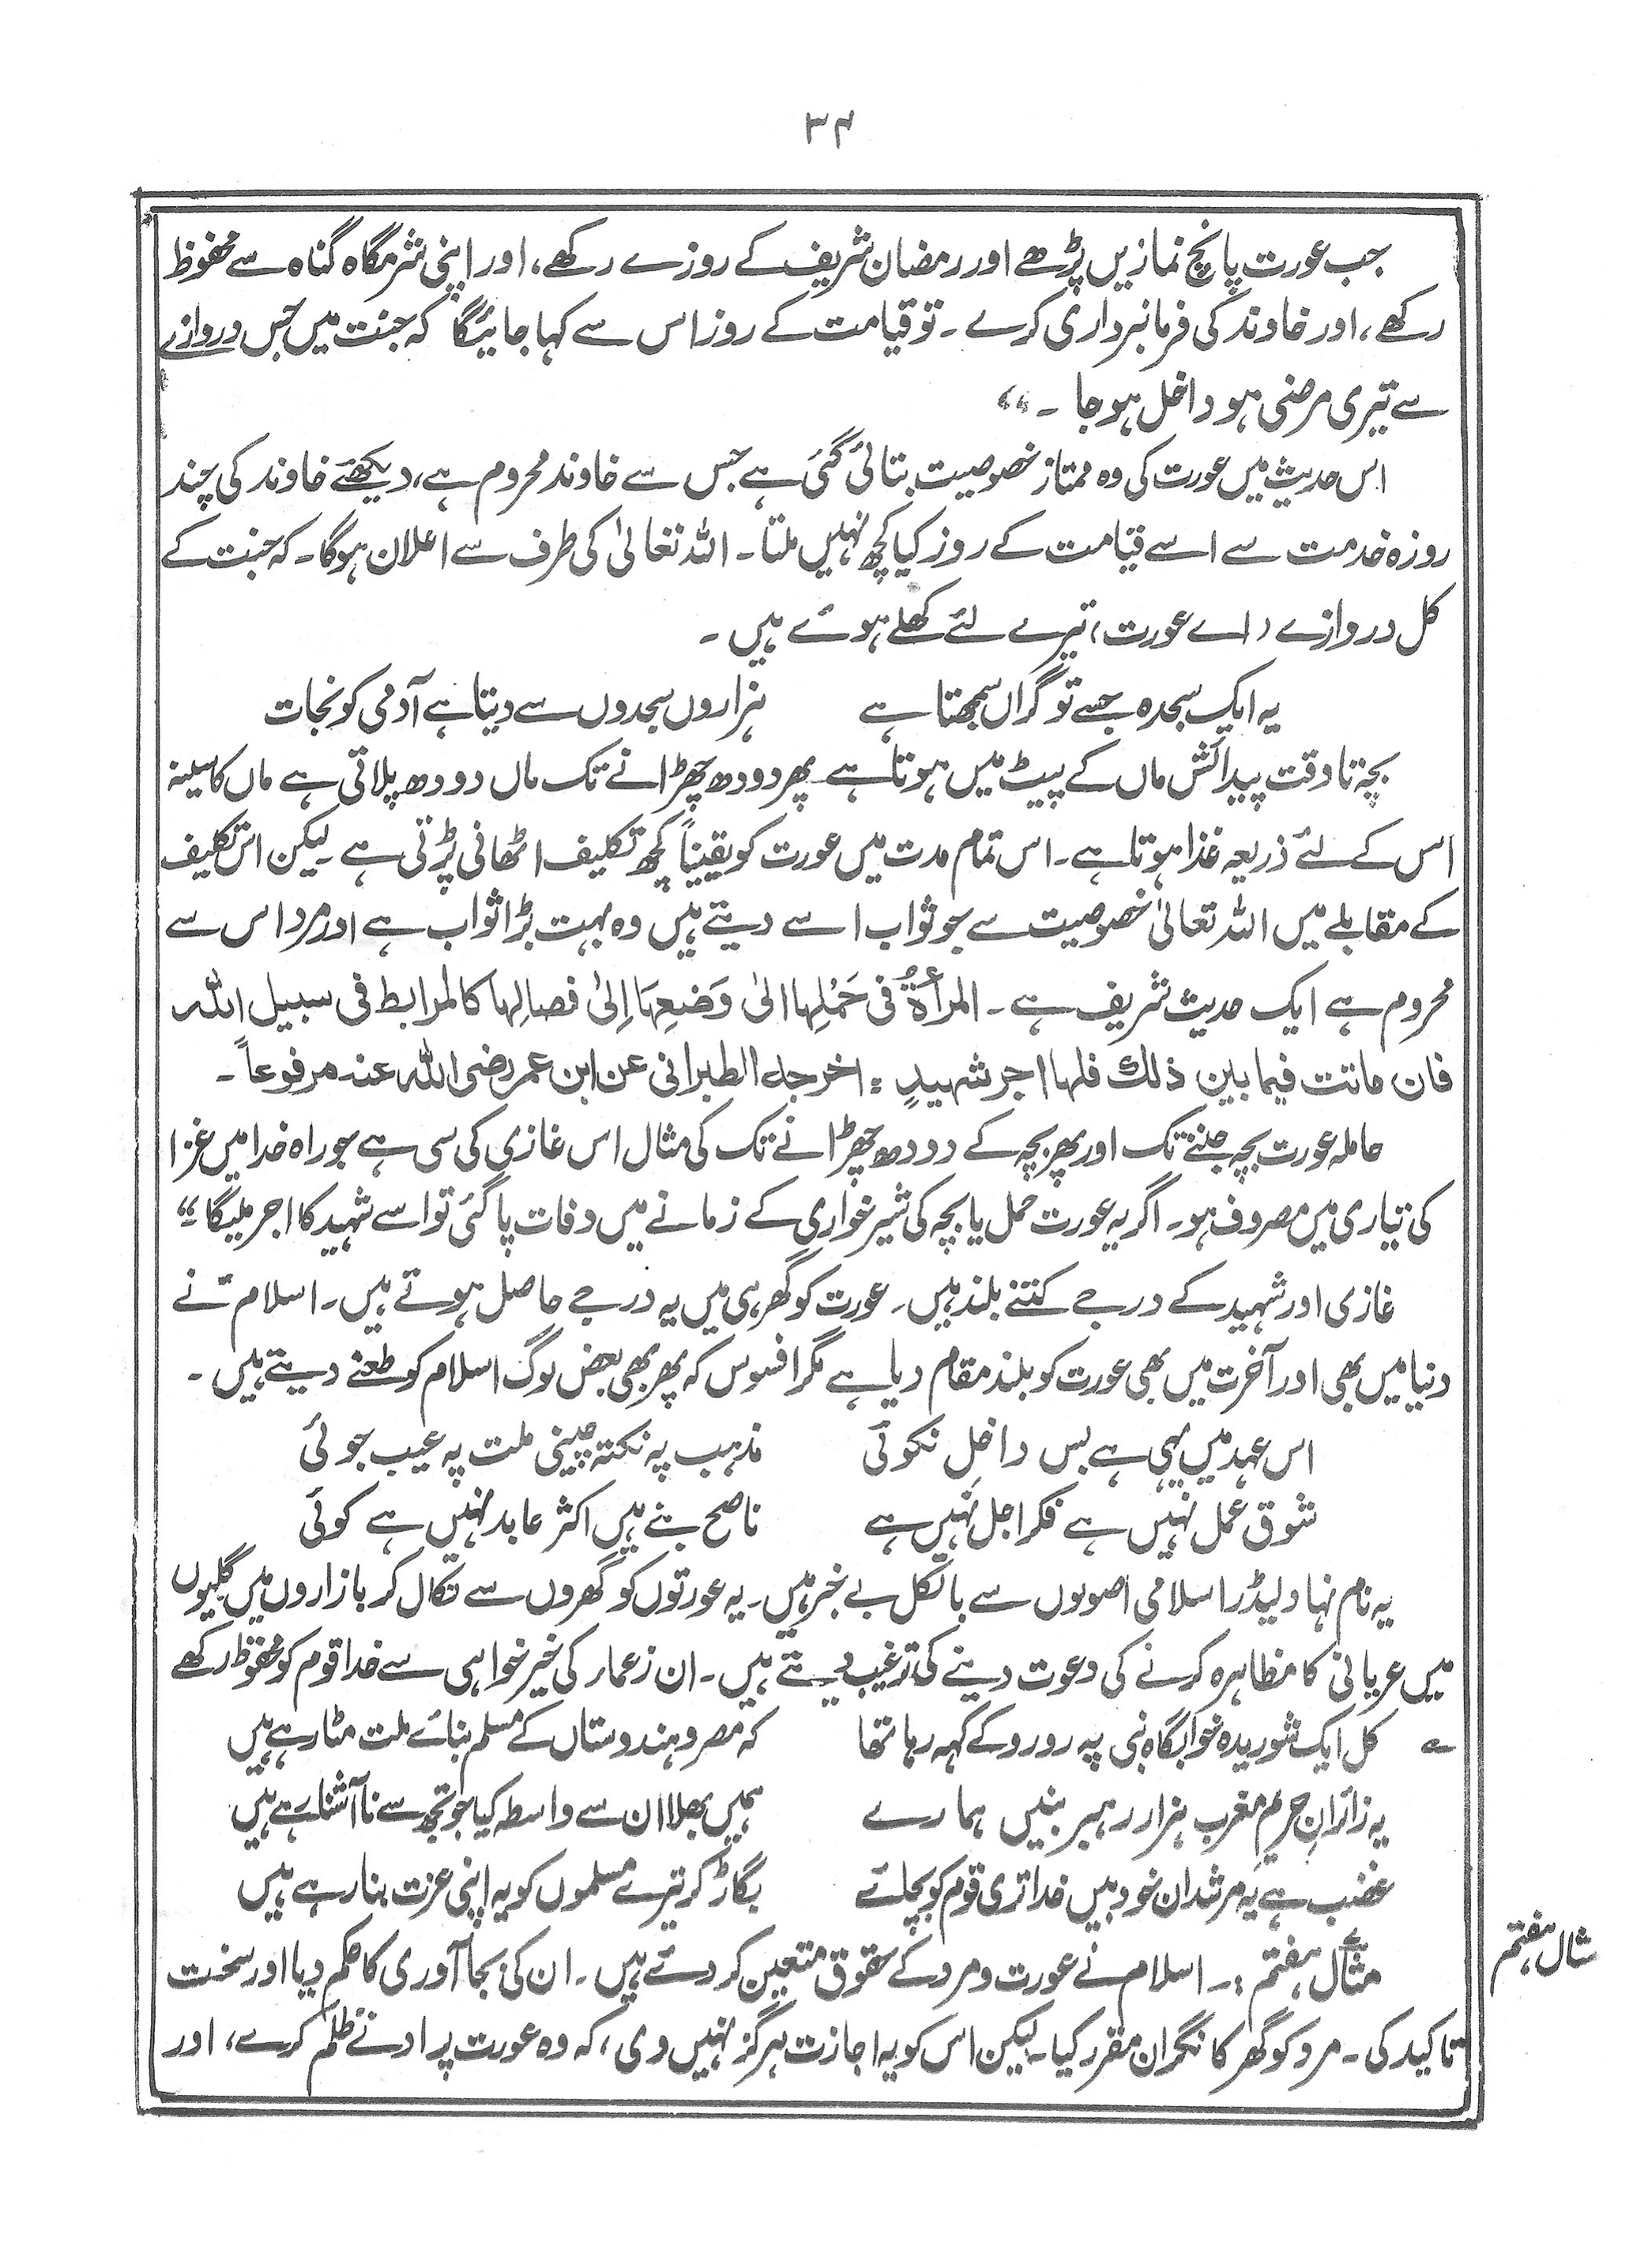 ۳۴
جب عورت پانچ نمازیں پڑھے اور رمضان شریف کے روزے رکھے، اور اپنی شرمگاہ گناہ سے محفوظ
رکھے، اور خاوند کی فرمانبرداری کرے ۔ تو قیامت کے روز اس سے کہا جائیگا کہ جنت میں جس دروازے
سے تیری مرضی ہو داخل ہو جا ۔“
اس حدیث میں عورت کی وہ ممتاز خصوصیت بتائی گئی ہے جس سے خاوند محروم ہے، دیکھئے خاوند کی چند
روزہ خدمت سے اسے قیامت کے روز کیا کچھ نہیں ملتا ۔ اللہ تعالیٰ کی طرف سے اعلان ہوگا۔ کہ جنت کے
کل دروازے (اے عورت) تیرے لئے کھلے ہوئے ہیں ۔
یہ ایک سجدہ جسے تو گراں سمجھتا ہے ہزاروں سجدوں سے دیتا ہے آدمی کو نجات
بچہ تا وقت پیدائش ماں کے پیٹ میں ہوتا ہے پھر دودھ چھڑانے تک ماں دودھ پلاتی ہے ماں کا سینہ
اس کے لئے ذریعہ غذا ہوتا ہے ۔ اس تمام مدت میں عورت کو یقیناً کچھ تکلیف اٹھانی پڑتی ہے ۔ لیکن اس تکلیف
کے مقابلے میں اللہ تعالیٰ خصوصیت سے جو ثواب اسے دیتے ہیں وہ بہت بڑا ثواب ہے اور مرد اس سے
محروم ہے ایک حدیث شریف ہے ۔ المرأۃُ فی حَمْلِها الیٰ وَضعِهَا اِلیٰ فصالِها کالمرابط فی سبیل اللہ
فان ماتت فیما بین ذلك فلها اجر شہیدٍ ؛ اخرجه الطبرانی عن ابن عمر رضی اللہ عنه مرفوعاً ۔
حاملہ عورت بچہ جننے تک اور پھر بچہ کے دودھ چھڑانے تک کی مثال اس غازی کی سی ہے جو راہ خدا میں غزا
کی تیاری میں مصروف ہو ۔ اگر یہ عورت حمل یا بچہ کی شیر خواری کے زمانے میں وفات پا گئی تو اسے شہید کا اجر ملیگا ؛“
غازی اور شہید کے درجے کتنے بلند ہیں ۔ عورت کو گھر ہی میں یہ درجے حاصل ہوتے ہیں ۔ اسلام نے
دنیا میں بھی اور آخرت میں بھی عورت کو بلند مقام دیا ہے مگر افسوس کہ پھر بھی بعض لوگ اسلام کو طعنے دیتے ہیں ۔
اس عہد میں یہی ہے بس داخلِ نکوئی مذہب پہ نکتہ چینی ملت پہ عیب جوئی
شوق عمل نہیں ہے فکر اجل نہیں ہے ناصح بنے ہیں اکثر عابد نہیں ہے کوئی
یہ نام نہاد لیڈر اسلامی اصولوں سے بالکل بے خبر ہیں ۔ یہ عورتوں کو گھروں سے نکال کر بازاروں میں گلیوں
میں عریانی کا مظاہرہ کرنے کی دعوت دینے کی ترغیب دیتے ہیں ۔ ان زعمار کی خیر خواہی سے خدا قوم کو محفوظ رکھے
؎ کل ایک شوریدہ خوابگاہ نبی پہ رو رو کے کہہ رہا تھا کہ مصر و ہندوستاں کے مسلم بنائے ملت مٹا رہے ہیں
یہ زائرانِ حریمِ مغرب ہزار رہبر بنیں ہمارے ہمیں بھلا ان سے واسطہ کیا جو تجھ سے ناآشنا رہے ہیں
غضب ہے یہ مرشدان خود بیں خدا تری قوم کو بچائے بگاڑ کر تیرے مسلموں کو یہ اپنی عزت بنا رہے ہیں
مثال ہفتم
مثال ہفتم :۔ اسلام نے عورت و مرد کے حقوق متعین کر دئے ہیں ۔ ان کی بجا آوری کا حکم دیا اور سخت
تاکید کی ۔ مرد کو گھر کا نگران مقرر کیا ۔ لیکن اس کو یہ اجازت ہرگز نہیں دی ، کہ وہ عورت پر ادنے ظلم کرے ، اور